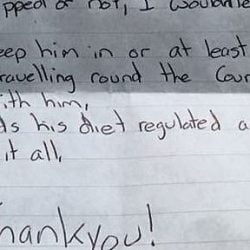 pped or not, I wouldn't
eep him in or at least
ravelling round the Cour
ith him,
ds his diet regulated a
it all,
hankyou!